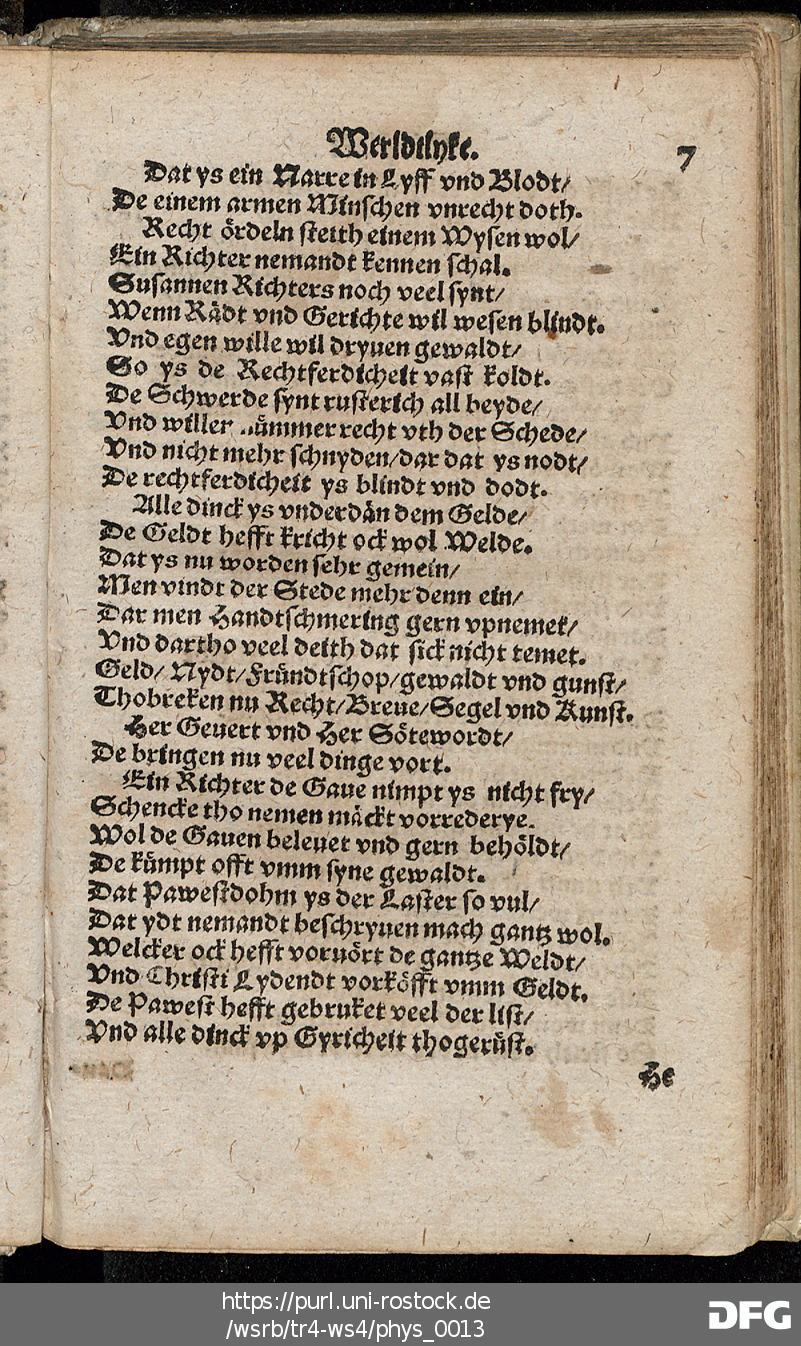 Werldtlyke.
7
Dat ys ein Narre in Lyff vnd Blodt/
De einem armen Minschen vnrecht doth.
Recht ördeln steith einem Wysen wol/
Ein Richter nemandt kennen schal.
Susannen Richters noch veel synt/
Wenn Rädt vnd Gerichte wil wesen blindt.
Vnd egen wille wil dryuen gewaldt/
So ys de Rechtferdicheit vast koldt.
De Schwerde synt rusterich all beyde/
Vnd willer recht vth der Schede/
Vnd nicht mehr schnyden/dar dat ys nodt/
De rechtferdicheit ys blindt vnd dodt.
Alle dinck ys vnderdän dem Gelde/
De Geldt hefft kricht ock wol Welde.
Dat ys nu worden sehr gemein/
Men vindt der Stede mehr denn ein/
Dar men Handtschmering gern vpnemet/
Vnd dartho veel deith dat sick nicht temet.
Geld/ Nydt/Fründtschop/gewaldt vnd gunst/
Thobreken nu Recht/Breue/Segel vnd Kunst.
Her Geuert vnd Her Sötewordt/
De bringen nu veel dinge vort.
Ein Richter de Gaue nimpt ys nicht fry/
Schencke tho nemen mäckt vorrederye.
Wol de Gauen beleuet vnd gern behöldt/
De kümpt offt vmm syne gewaldt.
Dat Pawestdohm ys der Laster so vul/
Dat ydt nemandt beschryuen mach gantz wol.
Welcker ock hefft voruört de gantze Weldt/
Vnd Christi Lydendt vorköfft vmm Geldt.
De Pawest hefft gebruket veel der list/
Vnd alle dinck vp Gyricheit thogerüst.
He
https://purl.uni-rostock.de
/wsrb/tr4-ws4/phys_0013
DFG